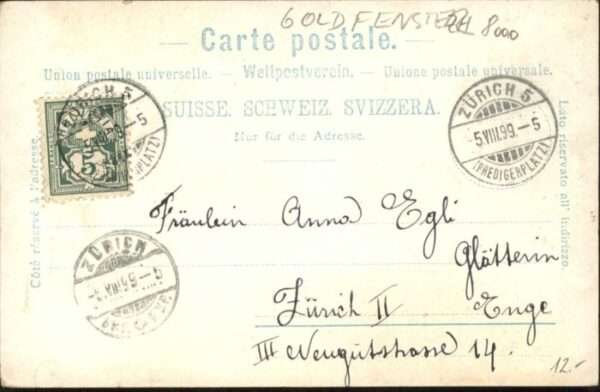 GOLDFENSTER 8000
Carte postale.
Union postale universelle. — Weltpostverein. — Unione postale universale.
SUISSE. SCHWEIZ. SVIZZERA.
Nur für die Adresse.
Côté réservé à l'adresse.
Lato riservato all' indirizzo.
ZÜRICH 5
ZÜRICH 5
5.VIII.99.–5
(PREDIGERPLATZ)
ZÜRICH
VIII.99–5
Fräulein Anna Egli
Glätterin
Zürich II Enge
III Neugutstrasse 14.
12.-